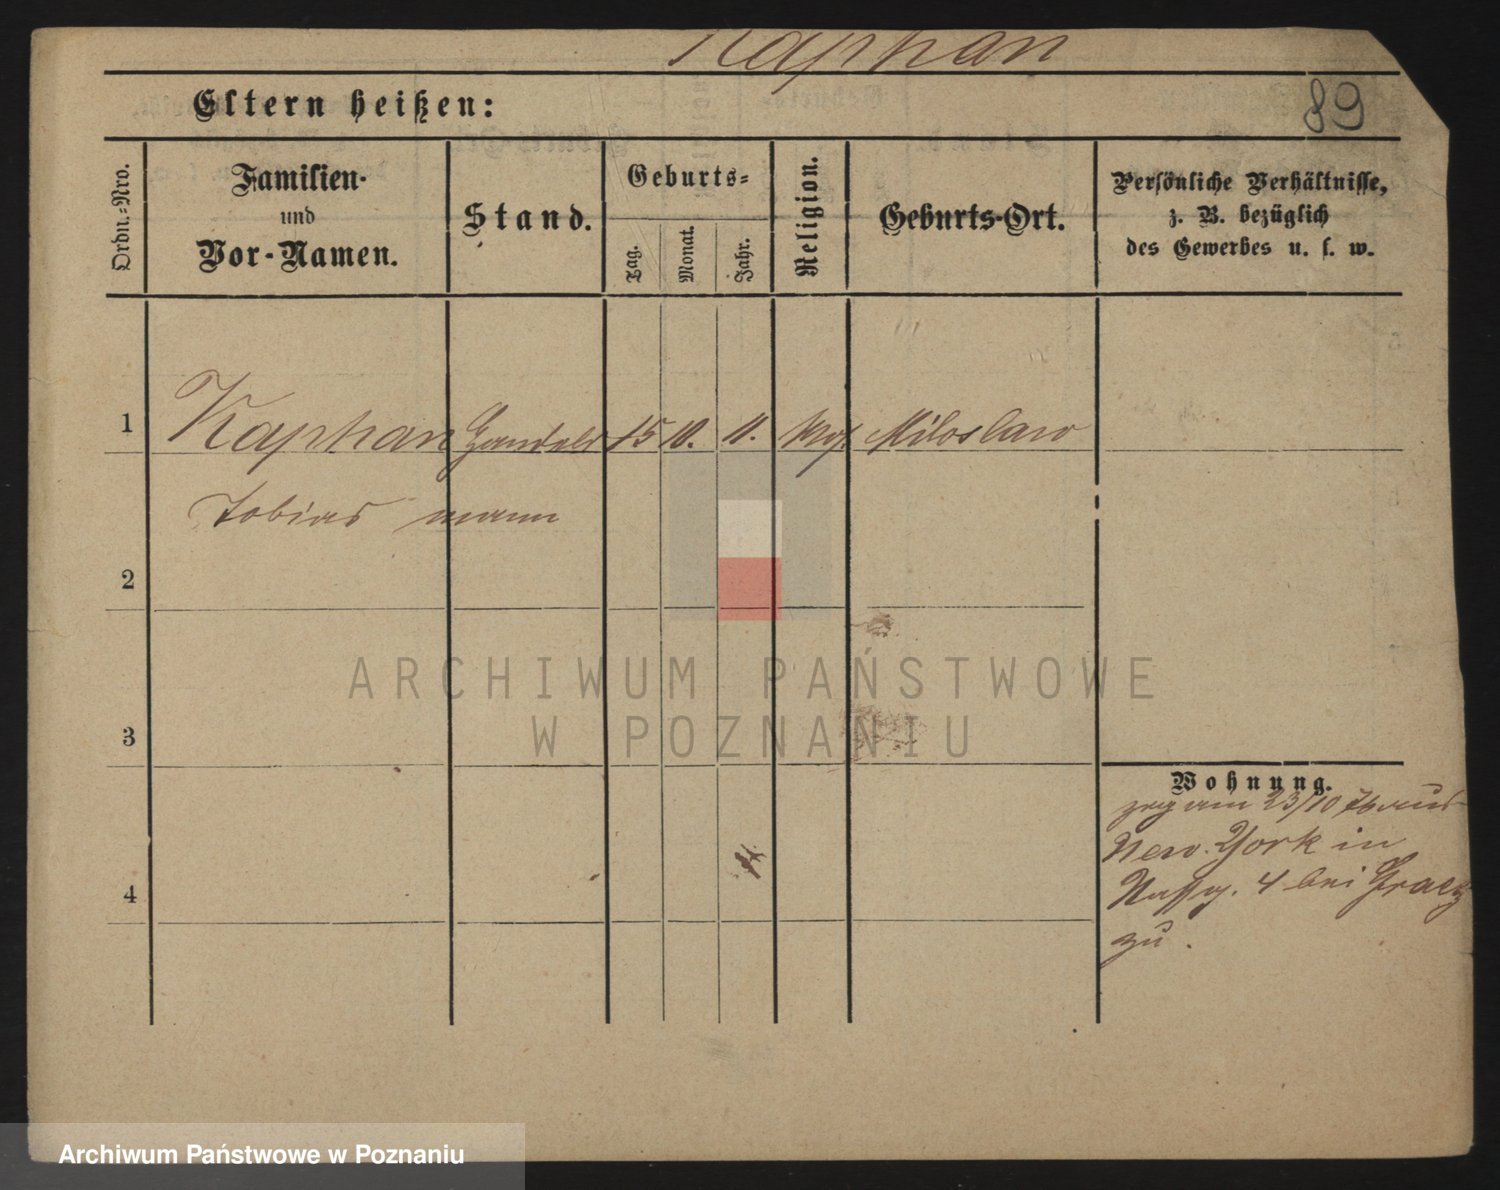 Kaphan
Eltern heißen:
89
Ordn.-Nro.
Familien-
und
Vor-Namen.
Stand.
Geburts-
Tag.
Monat.
Jahr.
Religion.
Geburts-Ort.
Persönliche Verhältnisse,
z. B. bezüglich
des Gewerbes u. s. w.
1 Kaphan Handels 15 10. 11. Mos. Miloslaw
Tobias mann
2
ARCHIWUM PAŃSTWOWE
W POZNANIU
3
Wohnung.
zog am 23/10 76 aus
New-York in
4 bei Graetz
zu.
4
Archiwum Państwowe w Poznaniu